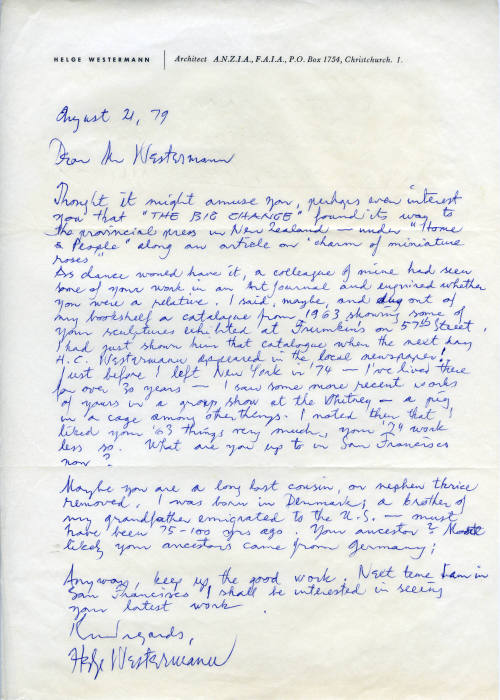 HELGE WESTERMANN | Architect A.N.Z.I.A., F.A.I.A., P.O. Box 1754, Christchurch. 1.
August 21, 79
Dear Mr Westermann
Thought it might amuse you, perhaps even interest
you that "THE BIG CHANGE" found its way to
the provincial press in New Zealand — under "Home
& People" along an article on "charm of miniature
roses"
As chance would have it, a colleague of mine had seen
some of your work in an Art Journal and enquired whether
you were a relative. I said, maybe, and dug out of
my bookshelf a catalogue from 1963 showing some of
your sculptures exhibited at Frumkins on 57th Street.
I had just shown him that catalogue when the next day
H.C. Westermann appeared in the local newspaper!
Just before I left New York in '74 — I've lived there
for over 30 years — I saw some more recent works
of yours in a group show at the Whitney — a pig
in a cage among other things. I noted then that I
liked your '63 things very much, your '74 work
less so. What are you up to in San Francisco
now?
Maybe you are a long lost cousin, or nephew thrice
removed. I was born in Denmark; a brother of
my grandfather emigrated to the U.S. — must
have been 75-100 yrs ago. Your ancestor? Most
likely your ancestors came from Germany;
Anyway, keep up the good work. Next time I am in
San Francisco I shall be interested in seeing
your latest work.
Kind regards,
Helge Westermann